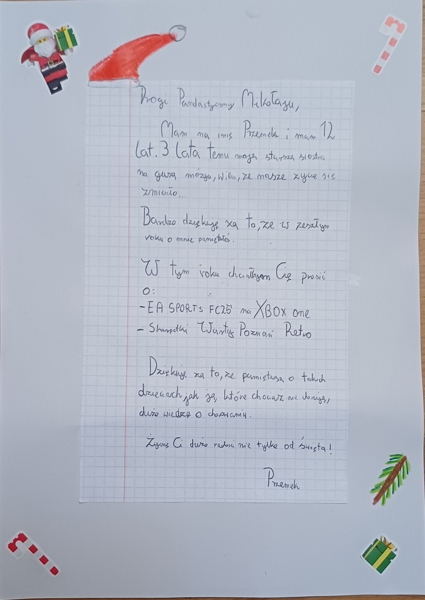 Drogi Pandastyczny Mikołaju,
Mam na imię Przemek i mam 12
lat. 3 lata temu moja starsza siostra
na guza mózgu, w.tw, że nasze życie się
zmieniło.
Bardzo dziękuję za to, że w zeszłym
roku o mnie pamiętałeś.
W tym roku chciałbym Cię prosić
o:
- EA SPORTS FC25 na XBOX one
- Skarpetki Warty Poznań Retro
Dziękuję za to, że pamiętasz o takich
dzieciach, jak ja, które chociaż nie chorują,
dużo wiedzą o chorowaniu.
Życzę Ci dużo radości nie tylko od święta!
Przemek